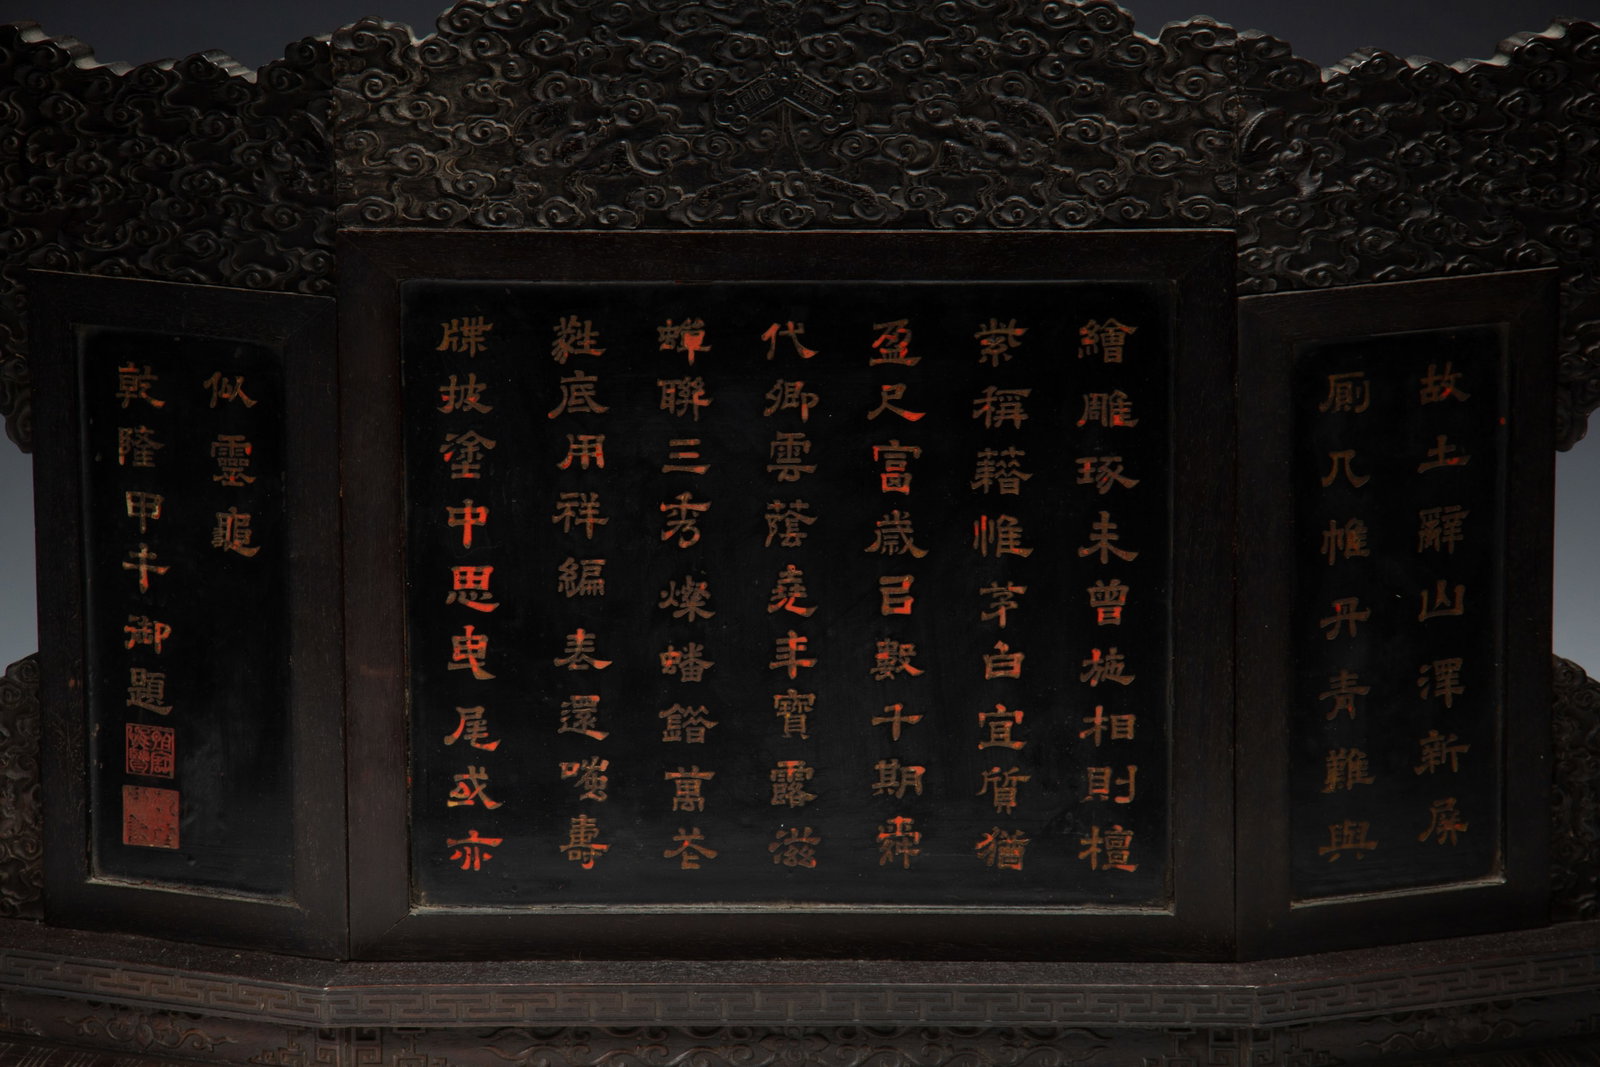 故土辭山澤新屏
廁几帷丹青難與
繪雕琢未曾施相則檀
紫稱藉惟茅白宜質猶
盈尺富歲已數千期舜
代卿雲蔭堯年寶露滋
蟬聯三秀燦蟠錯萬花
蕤底用祥編表還嗤壽
牒披塗中思曳尾或亦
似靈龜
乾隆甲午御題